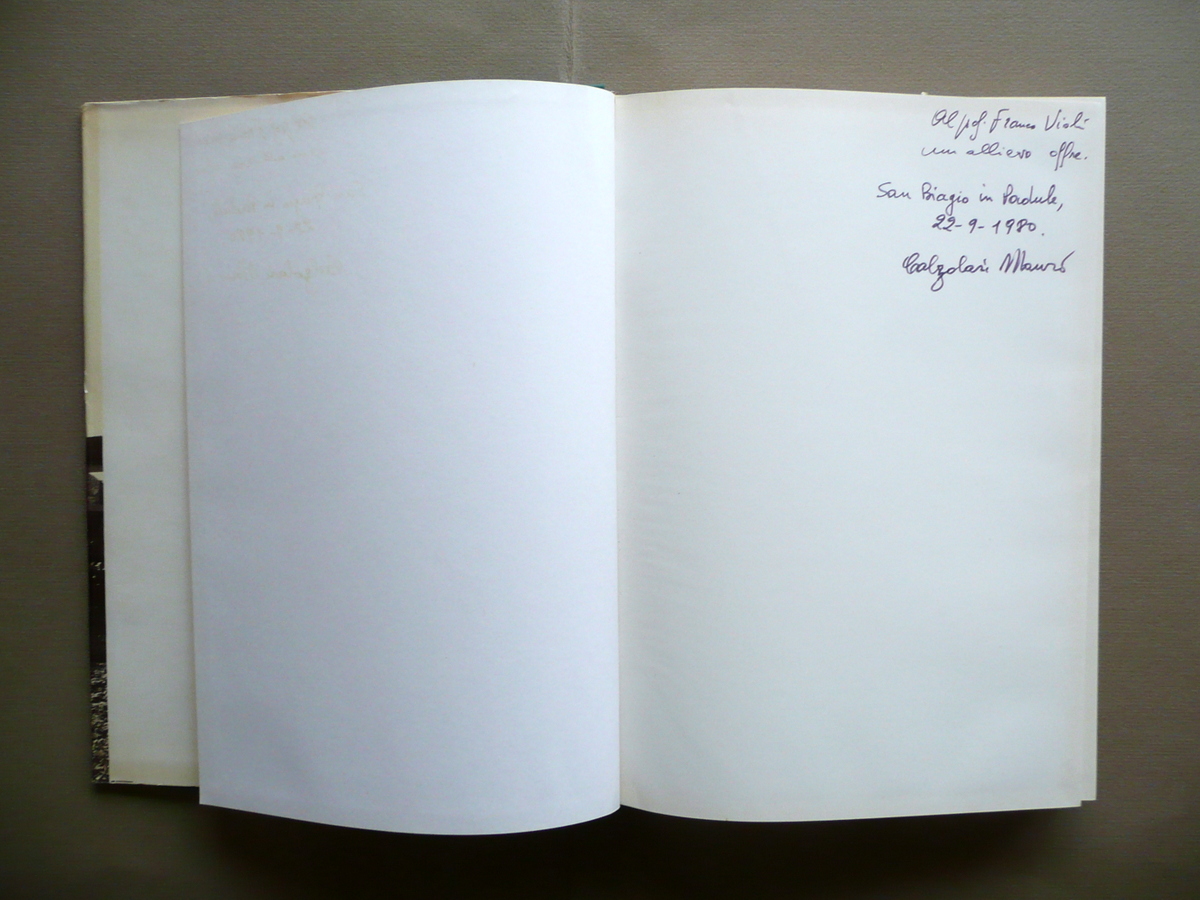 Al prof. Franco Violi
un allievo offre.
San Biagio in Padule,
22-9-1980.
Calzolari Mauro